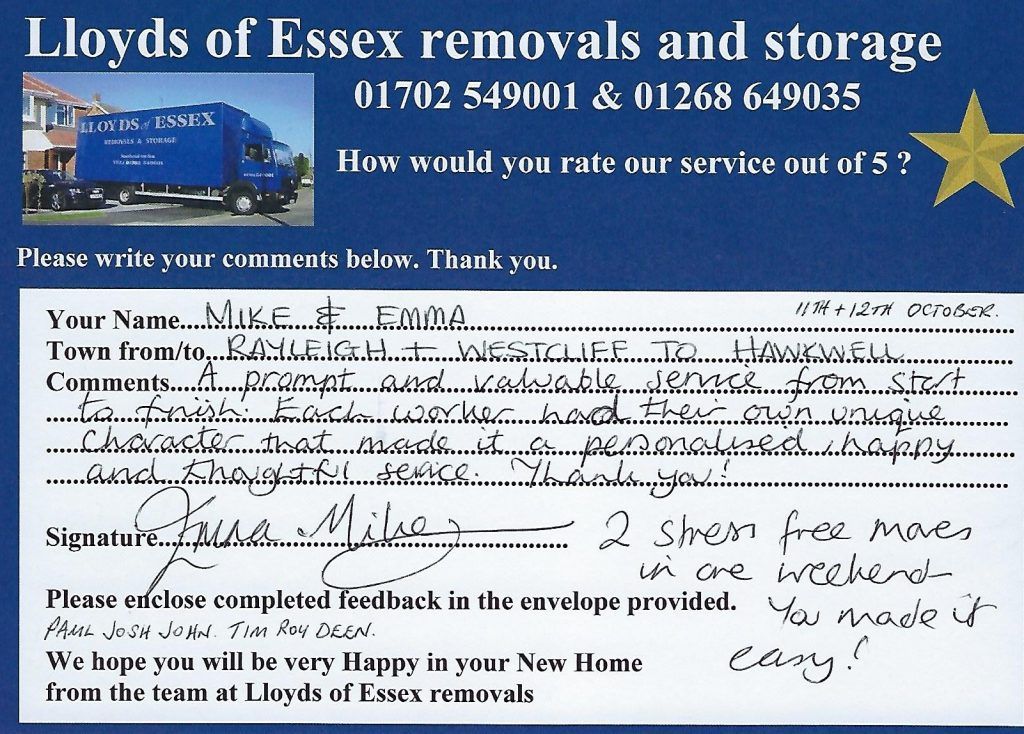 Lloyds of Essex removals and storage
01702 549001 & 01268 649035
LLOYDS of ESSEX
REMOVALS & STORAGE
How would you rate our service out of 5 ?
Please write your comments below. Thank you.
11TH + 12TH OCTOBER.
Your Name...MIKE & EMMA
Town from/to...RAYLEIGH + WESTCLIFF TO HAWKWELL
Comments...A prompt and valuable service from start
to finish. Each worker had their own unique
character that made it a personalised, happy
and thoughtful service. Thank you!
Signature...Emma Mike
2 stress free moves
in one weekend
You made it
easy!
Please enclose completed feedback in the envelope provided.
PAUL JOSH JOHN. TIM ROY DEEN.
We hope you will be very Happy in your New Home
from the team at Lloyds of Essex removals